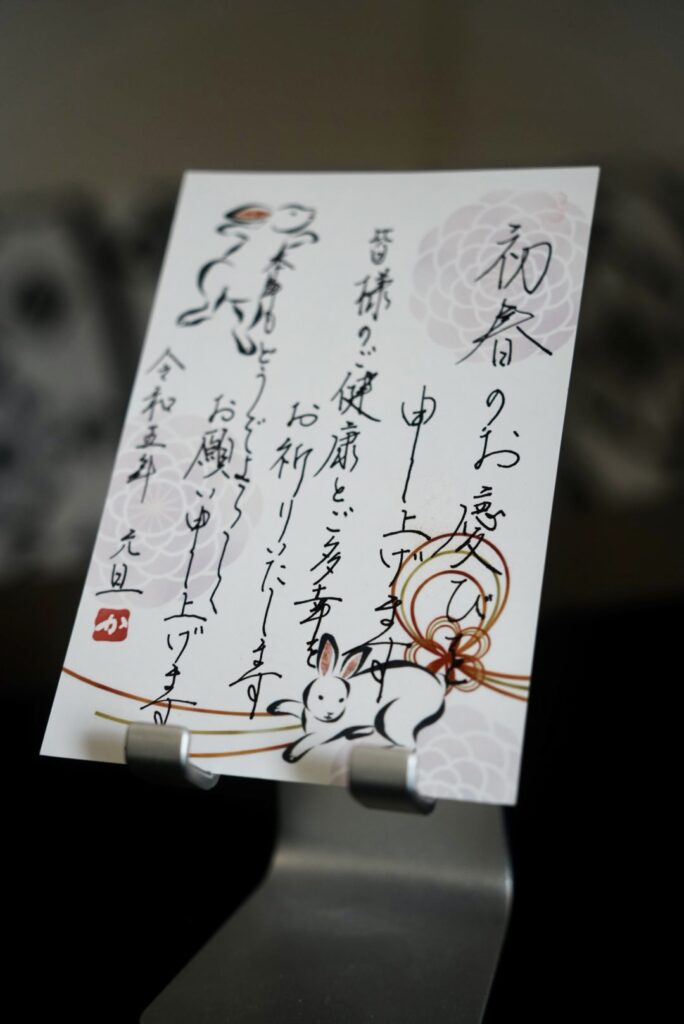 初春のお慶びを
申し上げます
皆様のご健康とご多幸を
お祈りいたします
本年もどうぞよろしく
お願い申し上げます
令和五年 元旦
か